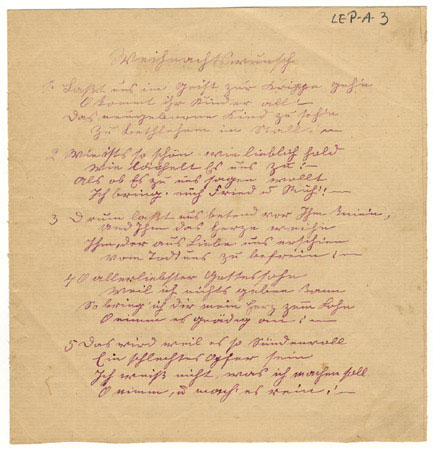 LEP-A-3
Weihnachtswunsch
1 Laßt uns im Geist zur Krippe gehn
O kommt ihr Kinder all!
Das neugeborne Kind zu sehn
Zu Bethlehem im Stall. —
2 Wie ists so schön wie lieblich hold
Wie lächelt Es uns zu —
Als ob Es zu uns sagen wollt
Ich bring euch Fried u Ruh! —
3 Drum laßt uns betend vor Ihm knien,
und Ihm das Herze weihn
Ihm, der aus Liebe uns erschien
vom Tod uns zu befrein! —
4 O allerliebster Gottessohn
Weil ich nichts geben kann
So bring ich dir mein Herz zum Lohn
O nimm es gnädig an! —
5 Das wird weil es so Sündenvoll
Ein schlechtes Opfer sein
Ich weiß nicht, was ich machen soll
O nimm, u mach es rein! —